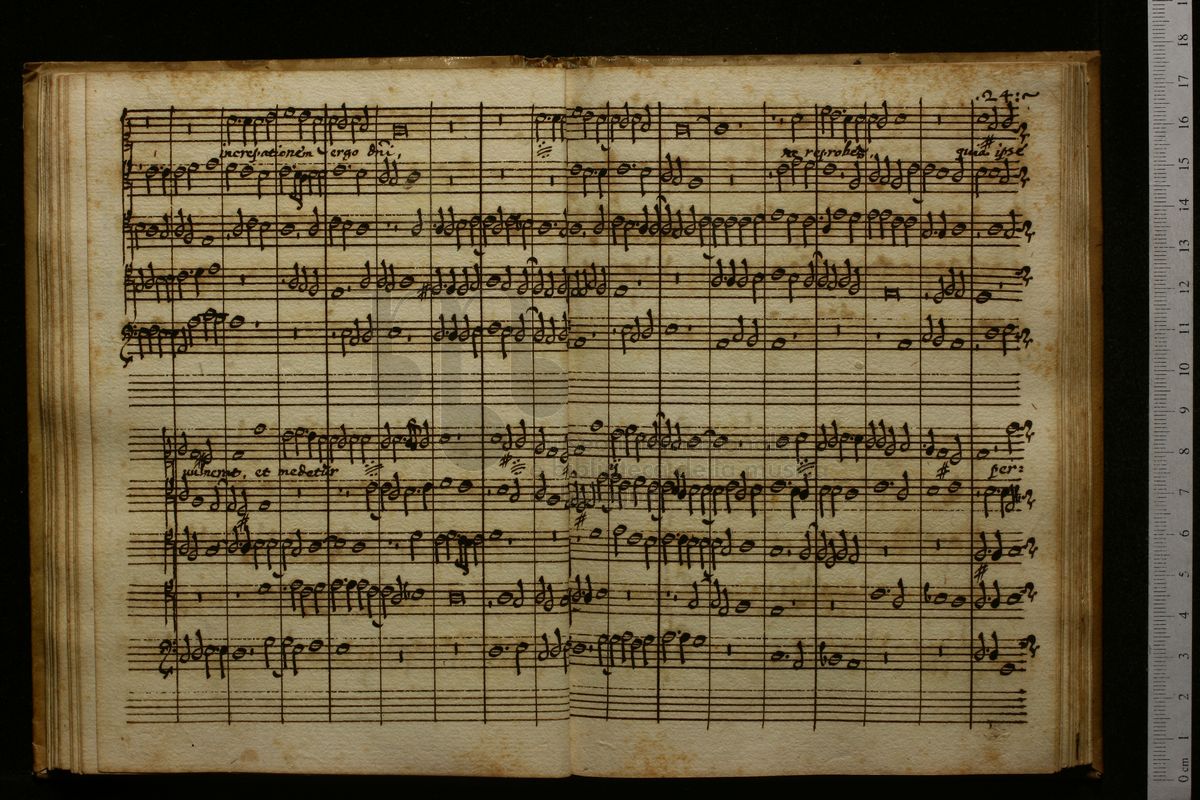 .24.
increpationem ergo dñi, ne reprobes, quia ipse
vulnerat, et medetur per:
bibliotecadellamusica
18
17
16
15
14
13
12
11
10
9
8
7
6
5
4
3
2
1
0 cm